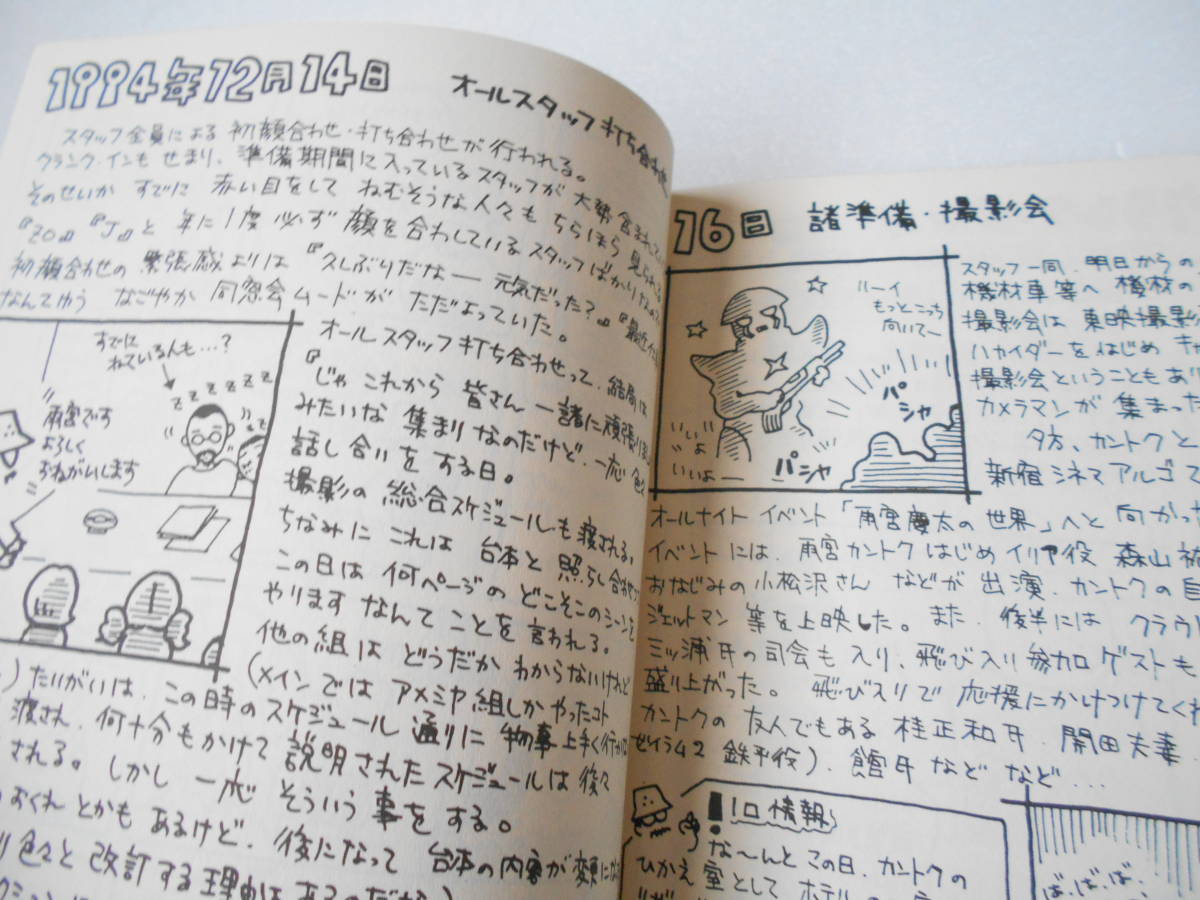 1994年12月14日
オールスタッフ打ち合わせ
スタッフ全員による 初顔合わせ・打ち合わせが行われる。
クランク・インも せまり、準備期間に入っているスタッフが 大勢含まれて
そのせいか すでに 赤い目をして ねむそうな人々も ちらほら 見られる
『ZO』『J』と 年に1度 必ず 顔を合わしているスタッフばかりなので
初顔合わせの 緊張感よりは 『久しぶりだなー 元気だった?』『最近
なんてゆう なごやか 同窓会ムードが ただよっていた。
すでに
ねている人も…?
z z z z z z z
雨宮です
よろしく
おねがいします
オールスタッフ打ち合わせって、結局は
『じゃ これから 皆さん 一諸に頑張り
みたいな 集まり なのだけど、一応 色々
話し合いを する日。
撮影の 総合スケジュールも渡される。
ちなみに これは 台本と 照らし合わせ
この日は 何ページの どこそこのシーンを
やります なんて ことを 言われる。
他の組は どうだか わからないけれど
(メインでは アメミヤ組しかやったコト
)たいがいは、この時のスケジュール 通りに 物事 上手く行かな
渡され、何十分もかけて 説明されたスケジュールは 後々
される。しかし 一応 そういう 事をする。
おくれ とかも あるけど、後になって 台本の内容が変更に
色々と 改訂する理由はあるのだが)
16日 諸準備・撮影会
ルーイ
もっとこっち
向いてー
いいぃ
いいよー
パシャ
パシャ
スタッフ一同、明日からの
機材車等へ 機材の
撮影会は 東映撮影
ハカイダーをはじめ キャ
撮影会ということもあり
カメラマンが 集まった
夕方、カントクと
新宿 シネマアルゴで
オールナイト イベント「雨宮慶太の世界」へと 向かっ
イベントには、雨宮カントクはじめ イリヤ役 森山祐
おなじみの 小松沢さん などが 出演、カントクの自
ジェットマン 等を上映した。また、後半には クラウ
三ッ浦氏の司会も 入り、飛び入り参加ゲストも
盛り上がった。飛び入りで 応援にかけつけてくれ
カントクの 友人でもある 桂正和氏、開田夫妻
ゼイラム2 鉄平役)、館氏 など など…
!
1口情報
な〜んと この日、カントクの
ひかえ室として ホテルの
ば、ば、ば、